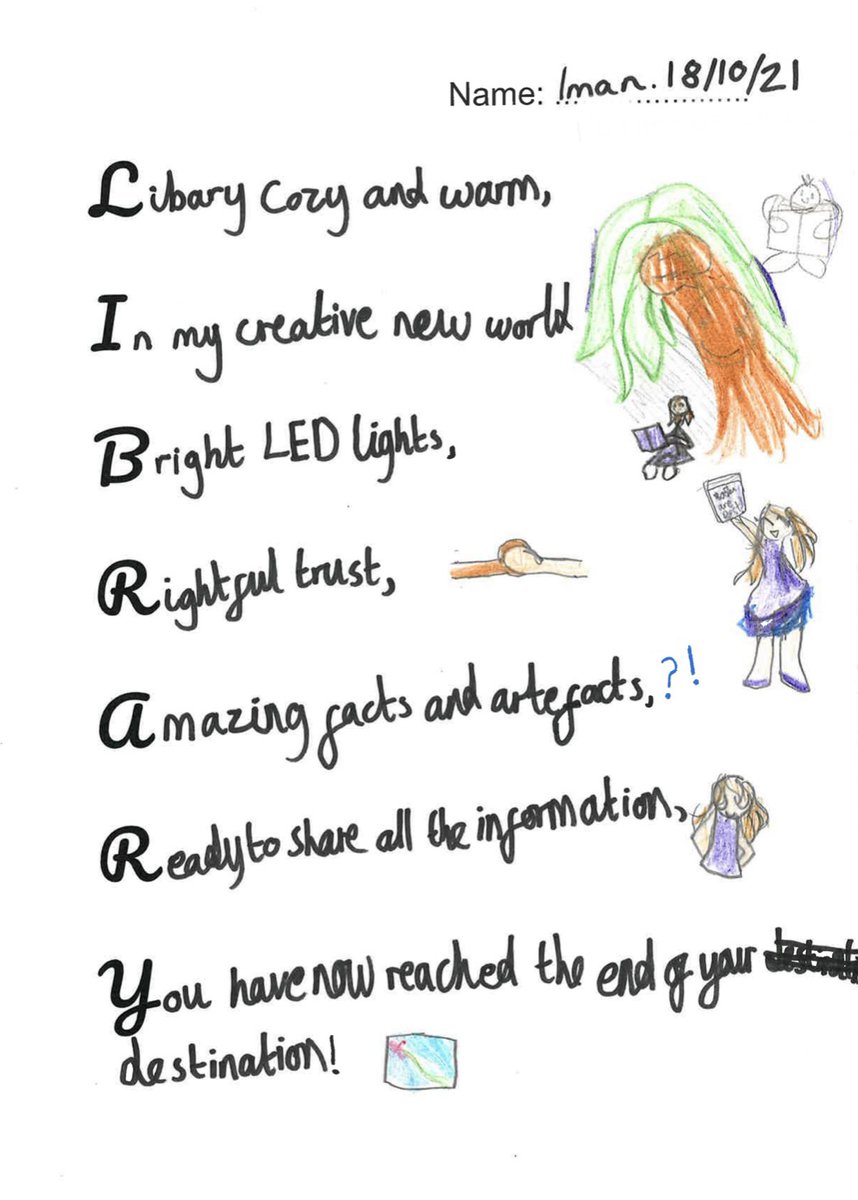 Name: Iman. 18/10/21
Libary Cozy and warm,
In my creative new world
Bright LED lights,
Rightful trust,
Amazing facts and artefacts,?!
Ready to share all the information,
You have now reached the end of your
destination!